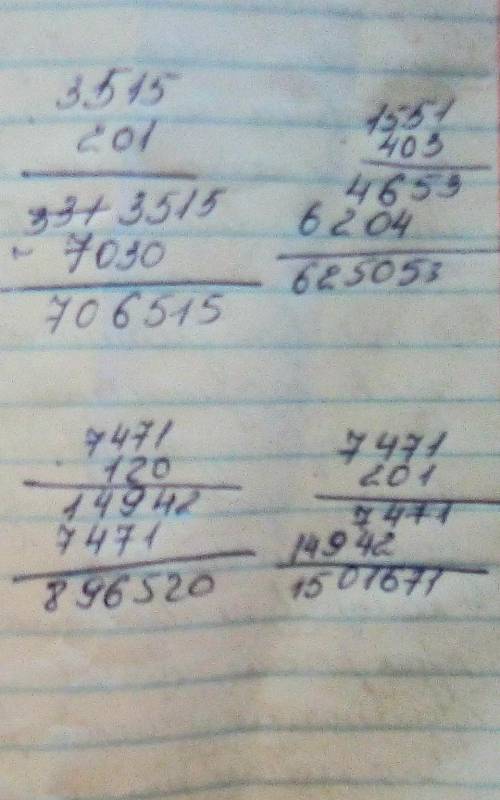 3515
201
3515
- 7030
706515
1551
403
4653
6204
625053
7471
120
14942
7471
896520
7471
201
7471
14942
1501671